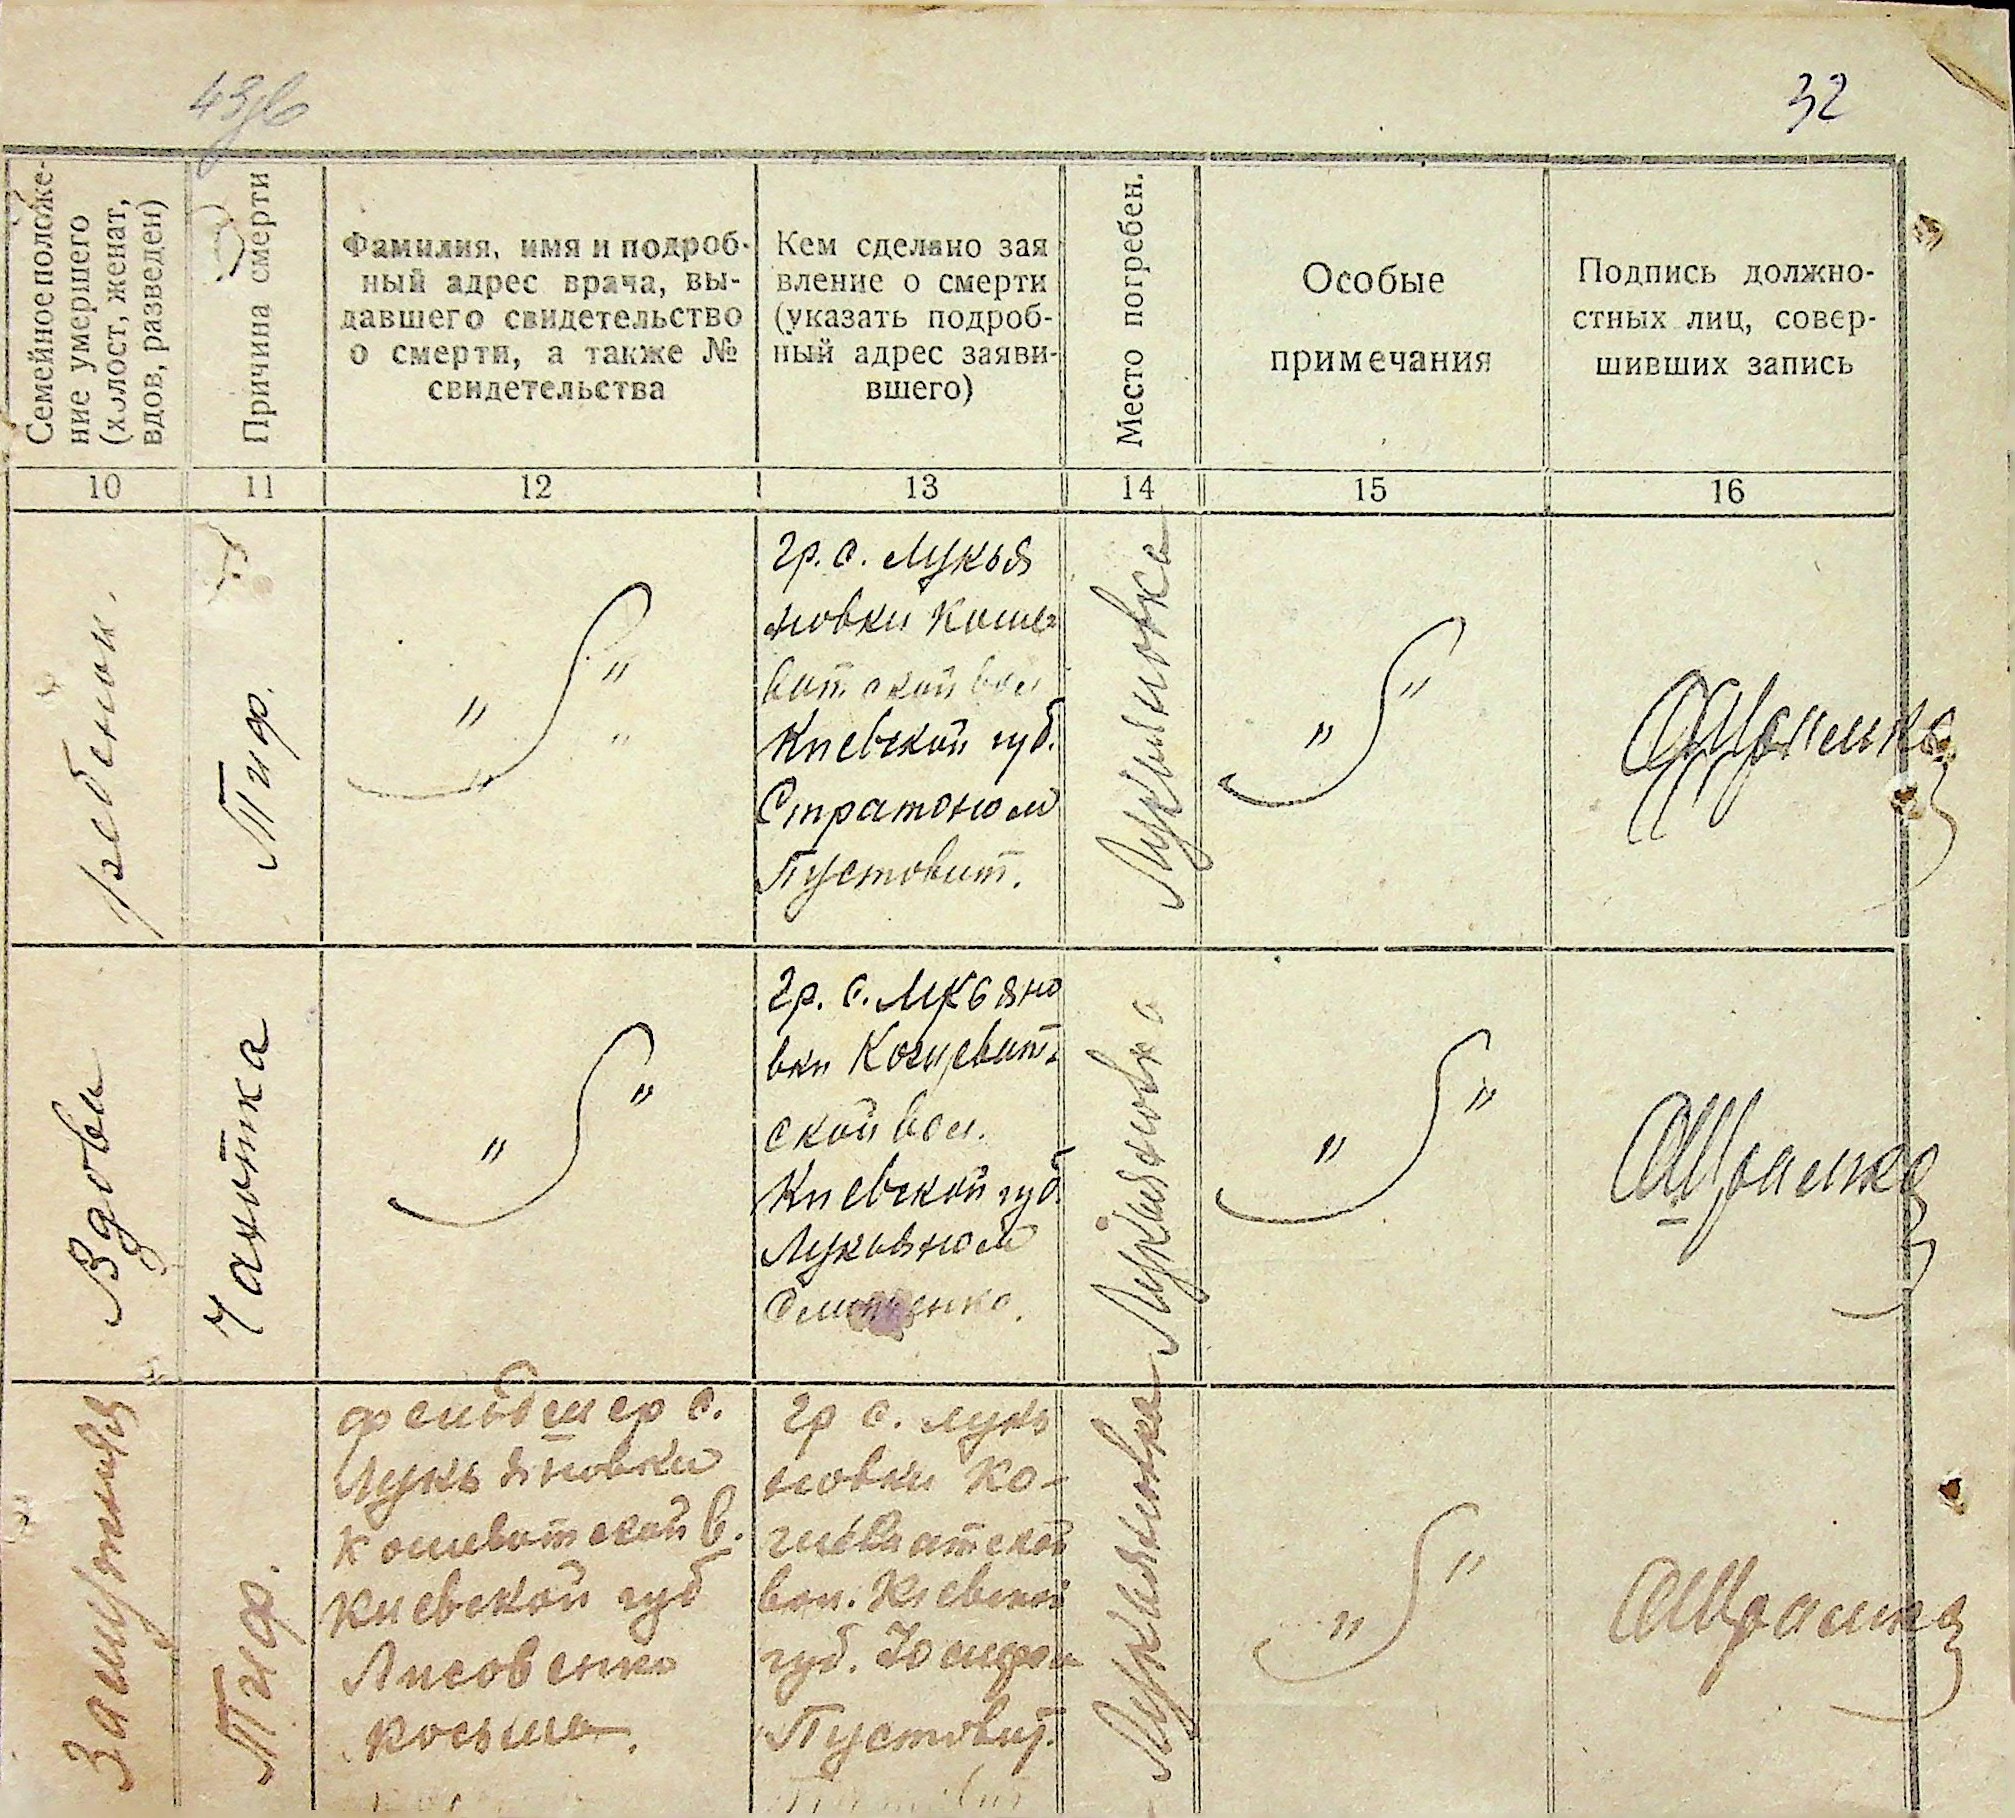 32
Семейное положе-
ние умершего
(холост, женат,
вдов, разведен)
Причина смерти
Фамилия, имя и подроб-
ный адрес врача, вы-
давшего свидетельство
о смерти, а также №
свидетельства
Кем сделано зая
вление о смерти
(указать подроб-
ный адрес заяви-
вшего)
Место погребен.
Особые
примечания
Подпись должно-
стных лиц, совер-
шивших запись
10 11 12 13 14 15 16
ребенок.
Тиф.
" "
гр. с. Лукья
новки Коше
ватской вол
Киевской губ.
Стратоном
Пустовит.
Лукьяновка
" "
Вдова
Чахотка
" "
гр. с. Лукьяно
вки Кошеват
ской вол.
Киевской губ.
Лукьяном
Лукьяновка
" "
Замужняя
Тиф.
фельдшер с.
Лукьяновки
Кошеватской в.
Киевской губ
Лисовенко
Косьма.
гр с. Лукь
новки Ко-
шеватской
вол. Киевской
губ.
Пустовит.
Лукьяновка
" "